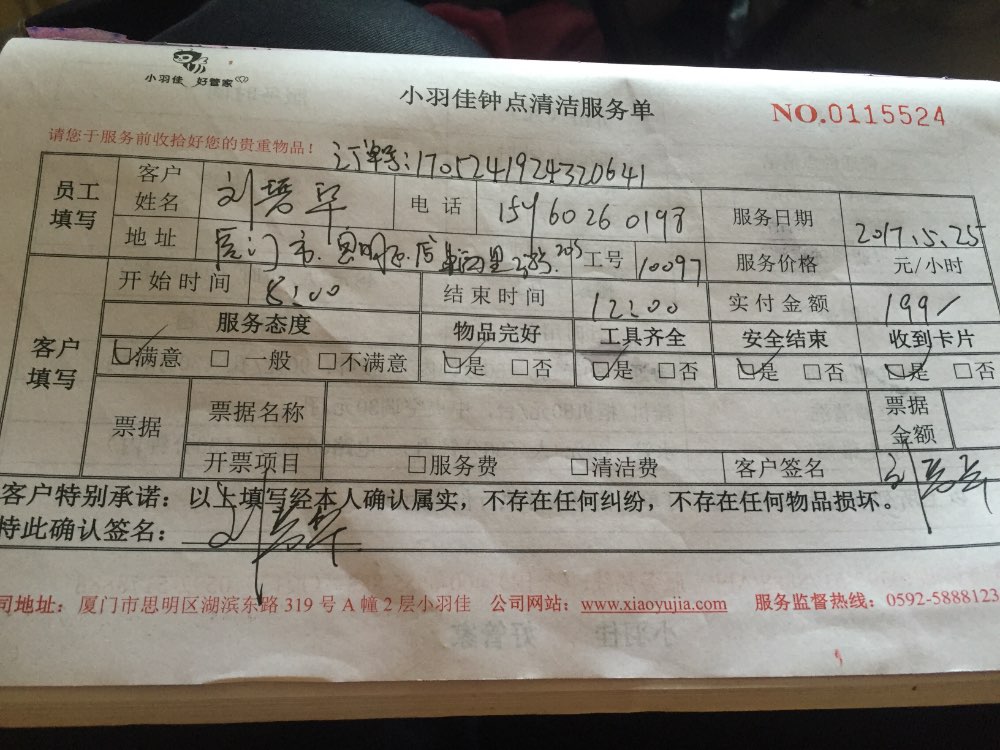 小羽佳 好管家
小羽佳钟点清洁服务单
NO.0115524
请您于服务前收拾好您的贵重物品！
订单号:1705241924320641
员工填写 客户姓名 刘 电话 15960260198 服务日期 2017.5.25
地址 厦门市.思明区 工号 10097 服务价格 元/小时
客户填写 开始时间 8:00 结束时间 12:00 实付金额 199
服务态度 物品完好 工具齐全 安全结束 收到卡片
☑满意 □一般 □不满意 ☑是 □否 ☑是 □否 ☑是 □否 ☑是 □否
票据 票据名称 票据金额
开票项目 □服务费 □清洁费 客户签名 刘
客户特别承诺：以上填写经本人确认属实，不存在任何纠纷，不存在任何物品损坏。
特此确认签名： 刘
司地址：厦门市思明区湖滨东路 319 号 A 幢 2 层小羽佳 公司网站：www.xiaoyujia.com 服务监督热线：0592-5888123